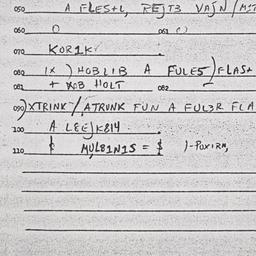 050 A FLES+L, REJTB VAJN / MIT
060 O 061 ( )
070 KOR1K
080 1X ) HOBLIB A FULES ) FLAS+
081 + HOLT 082
090 ) XTRINK / ATRUNK FUN A FUL3R FLA
100 A LEEJK814.
110 MUL81N1S = $ )-POXIRM,